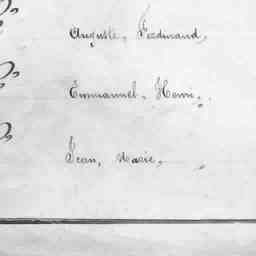 Auguste, Ferdinand,
Emmanuel, Henri,
Jean, Marie,